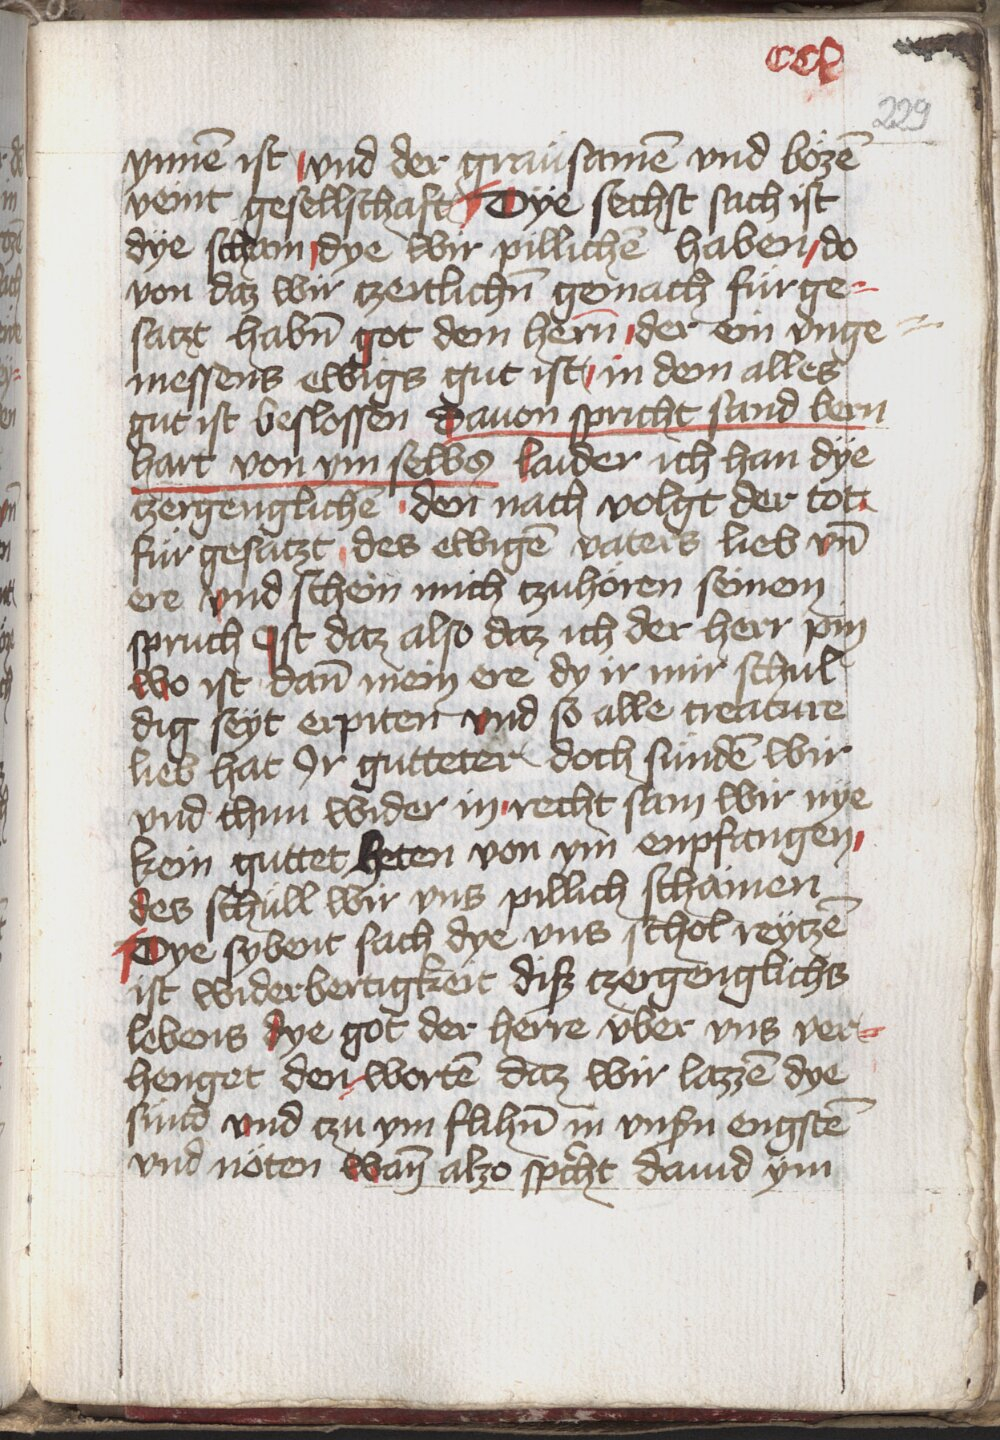 CCL
229
ynnē ist vnd der grausamē vnd bözē
veint gesellschaft Dÿe sechst sach ist
dÿe scham dye wir pillichē haben do
von daz wir tzeitlichn̄ gemach für ge=
satzt habn̄ got dem hern̄ der ein vnge=
messens ewigs gut ist in dem alles
gut ist beslossen Dauon spricht sand bern
hart von ym selbs laider ich han dÿe
tzergenglichē den nach volgt der tot
für gesatzt des ewigē vaters lieb vn̄
ere vnd schein mich tzuhören seinem
spruch Ist daz also daz ich der herr pin
wo ist dan̄ mein ere dy ir mir schul
dig seyt erpiten vnd so alle creature
lieb hat Ir gutteter doch sündē wir
vnd thun wider in recht sam wir nÿe
kein guttet heten von ym enpfangen
des schüll wir vns pillich schamen
Dye sybent sach dye vns schol reÿtzē
ist widerbertigkeit diß tzergenglichs
lebens dye got der herre vber vns ver=
henget den wortē daz wir lazzē dye
sünd vnd tzu ym flihn̄ in vnsn̄ engstē
vnd nöten wan̄ alzo spͥcht dauid ym